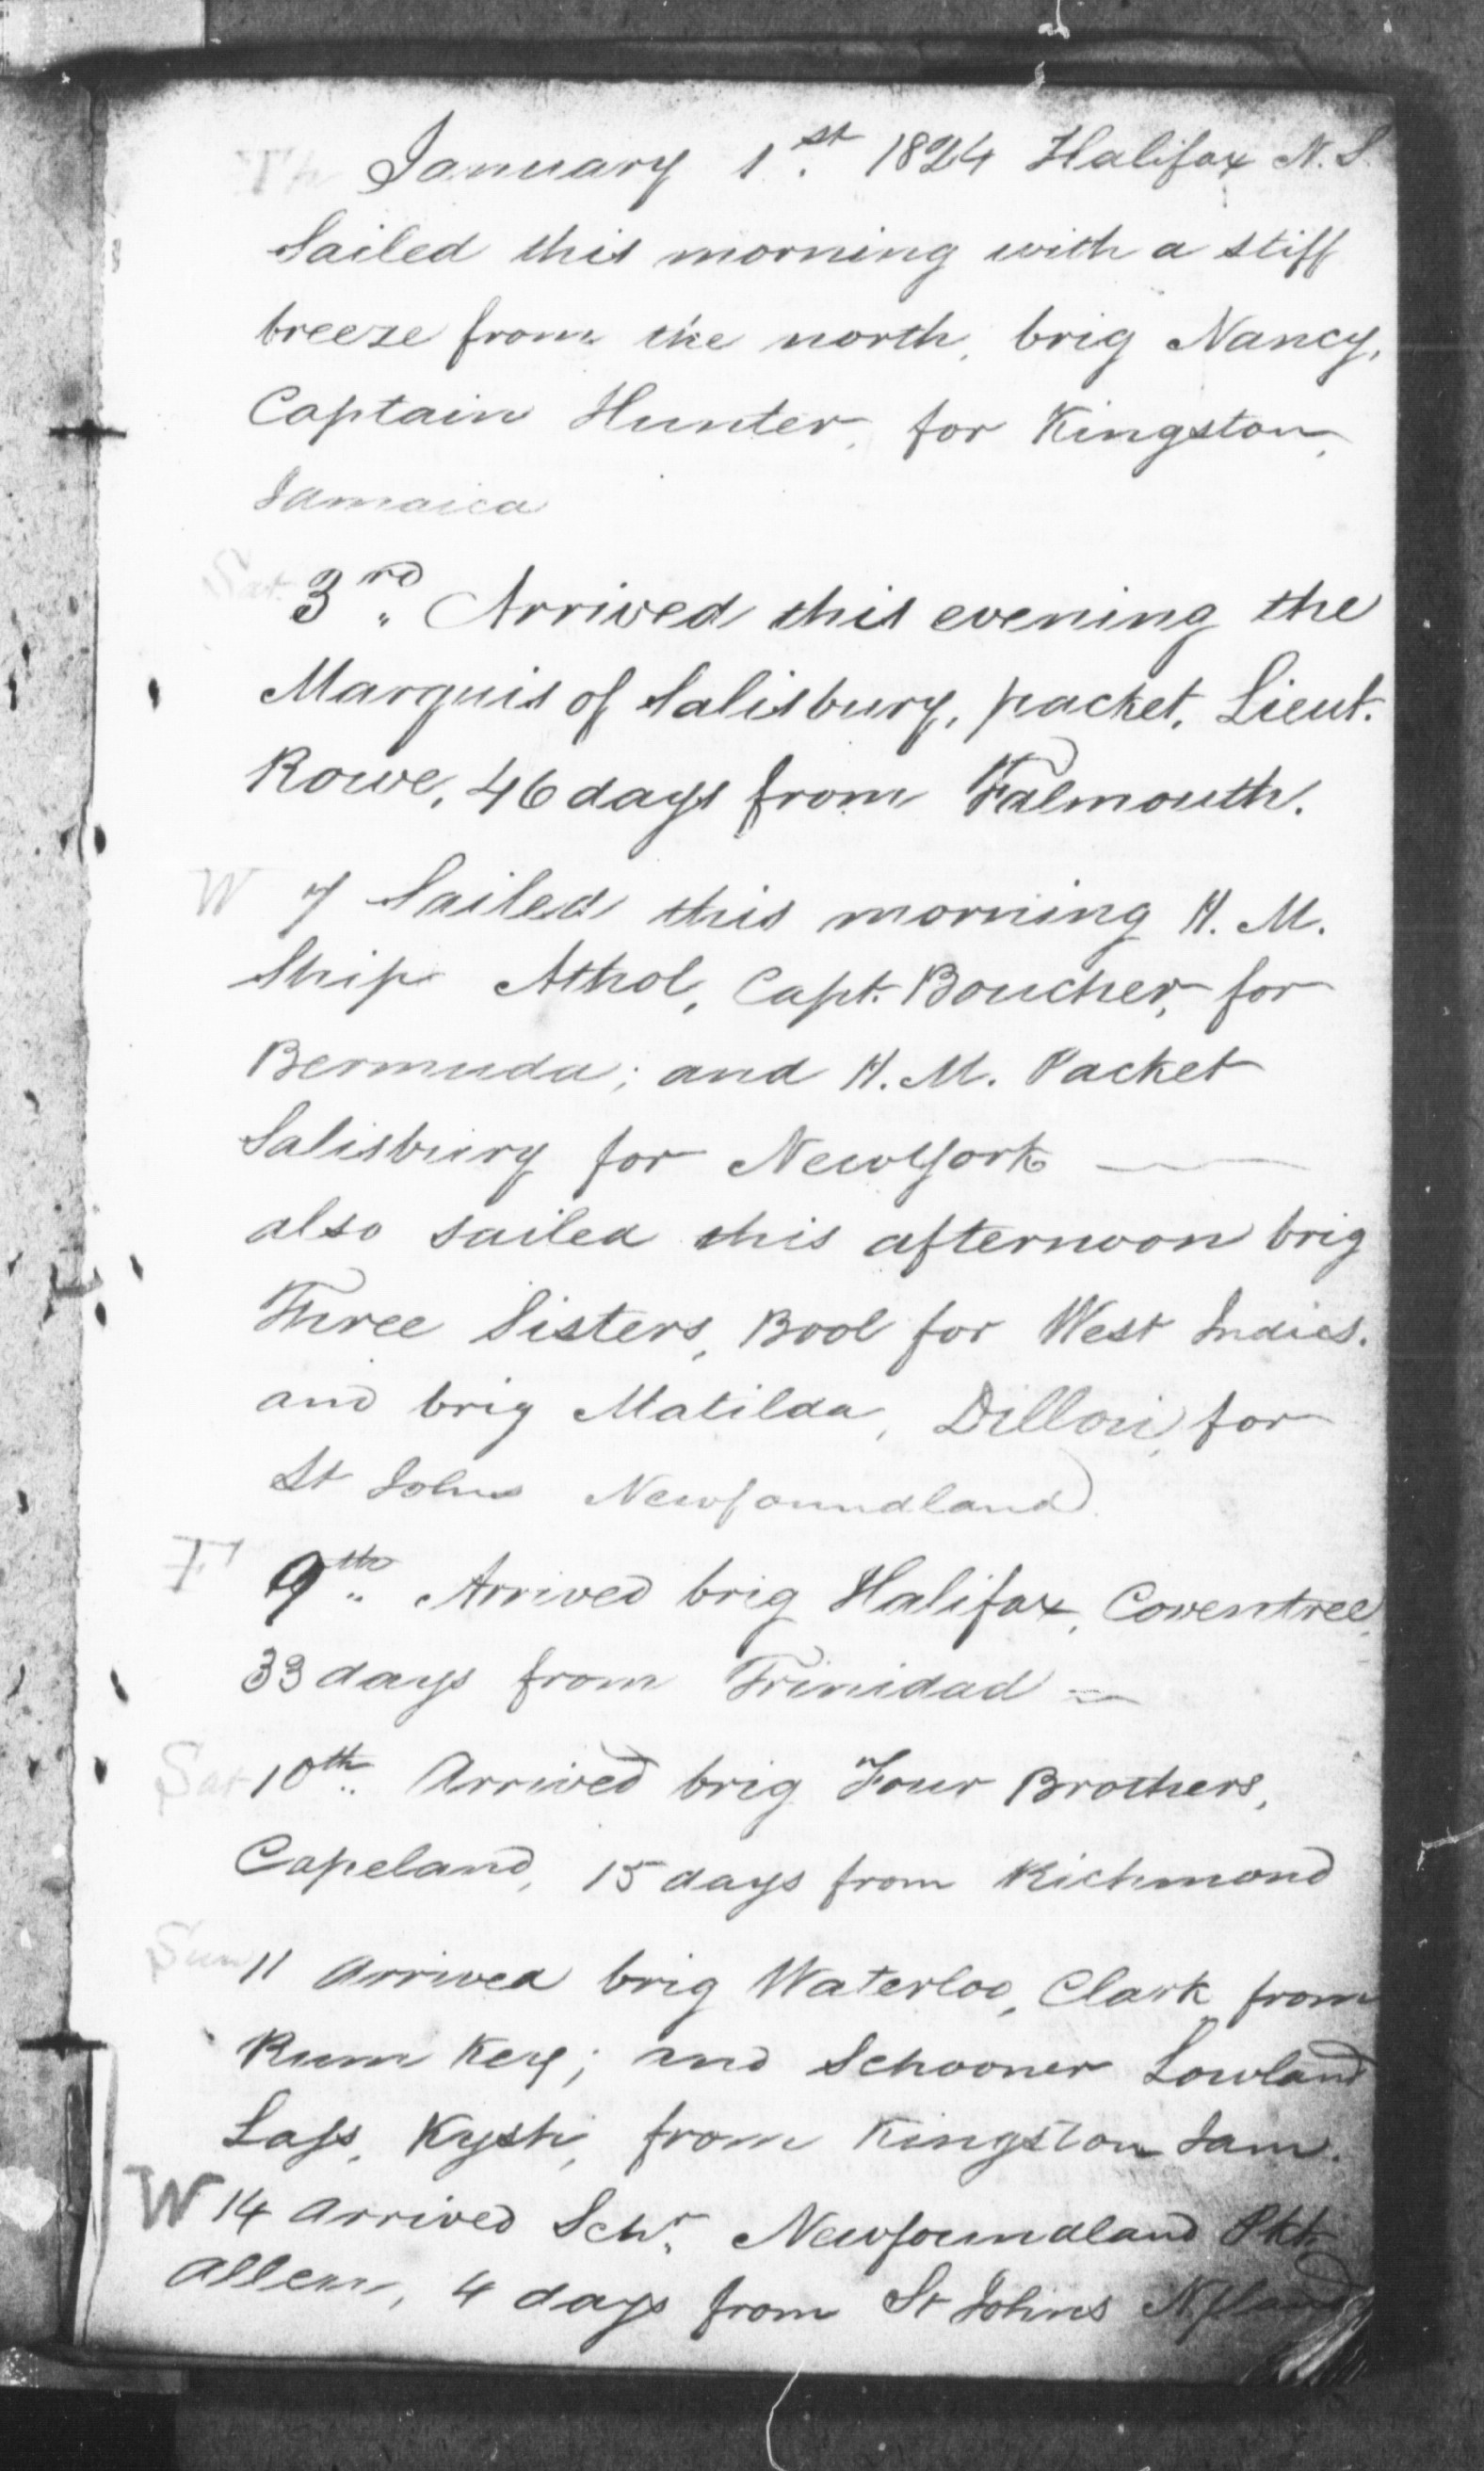 Th January 1st. 1824 Halifax N.S.
Sailed this morning with a stiff
breeze from the north, brig Nancy,
Captain Hunter, for Kingston,
Jamaica
Sat. 3rd. Arrived this evening the
Marquis of Salisbury, packet, Lieut.
Rowe, 46 days from Falmouth.
W 7 Sailed this morning H. M.
Ship Athol, Capt. Boucher, for
Bermuda; and H. M. Packet
Salisbury for New York —
also sailed this afternoon brig
Three Sisters, Bool for West Indies.
and brig Matilda, Dillon, for
St Johns Newfoundland.
F 9th. Arrived brig Halifax, Coventree,
33 days from Trinidad —
Sat 10th. Arrived brig Four Brothers,
Copeland, 15 days from Richmond
Sun 11 arrived brig Waterloo, Clark from
Rum Key; and Schooner Lowland
Lass, Kysh, from Kingston Jam.
W 14 arrived Schr. Newfoundland Pkt.
Allen, 4 days from St Johns Nfland